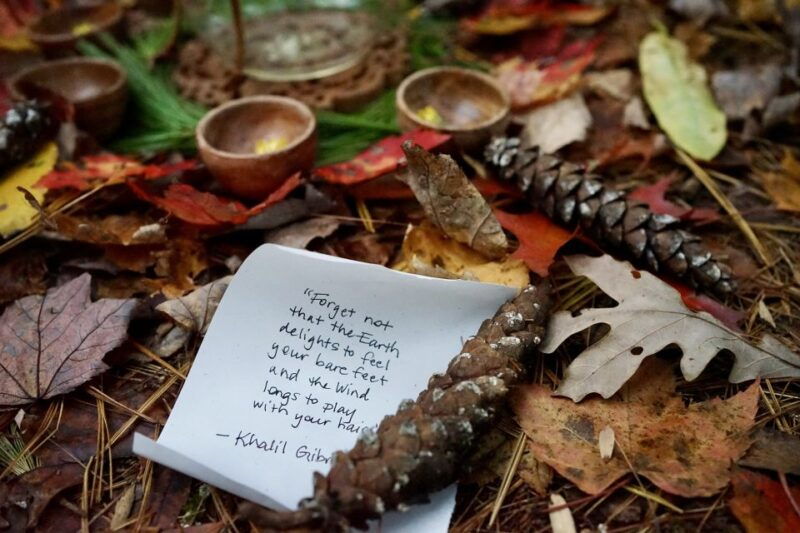 "Forget not
that the Earth
delights to feel
your bare feet
and the wind
longs to play
with your hair
— Khalil Gibr